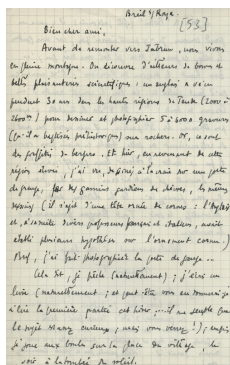 Breil s/ Roya
[53]
Bien cher ami,
Avant de remonter vers Tatreu, nous vivons
en pleine montagne. On découvre d'ailleurs de bonnes et
belles plaisanteries scientifiques : un anglais a vécu
pendant 30 ans dans les hautes régions de Tende (2000 à
2600m) pour dessiner et photographier 5 à 600 gravures
(qu'il a baptisées préhistoriques) aux rochers. Or, ce sont
des graffitis de bergers. Et hier, en revenant de cette
région, j'ai vu, dessinés à la craie sur une porte
de grange, par des gamins gardiens de chèvres, les mêmes
dessins (il s'agit d'une tête ornée de cornes : l'anglais
et, à sa suite divers professeurs français et italiens, avait
établi plusieurs hypothèses sur l'ornement cornu.)
Bref, j'ai fait photographier la porte de grange..
Cela dit, je pêche (naturellement) ; j'écris un
livre (naturellement ; et peut-être vous en donnerai-je
à lire la première partie cet hiver... il me semble que
le sujet curieux ; mais vous verrez !) ; enfin
je joue aux boules sur la place du village, le
soir à la tombée du soleil.